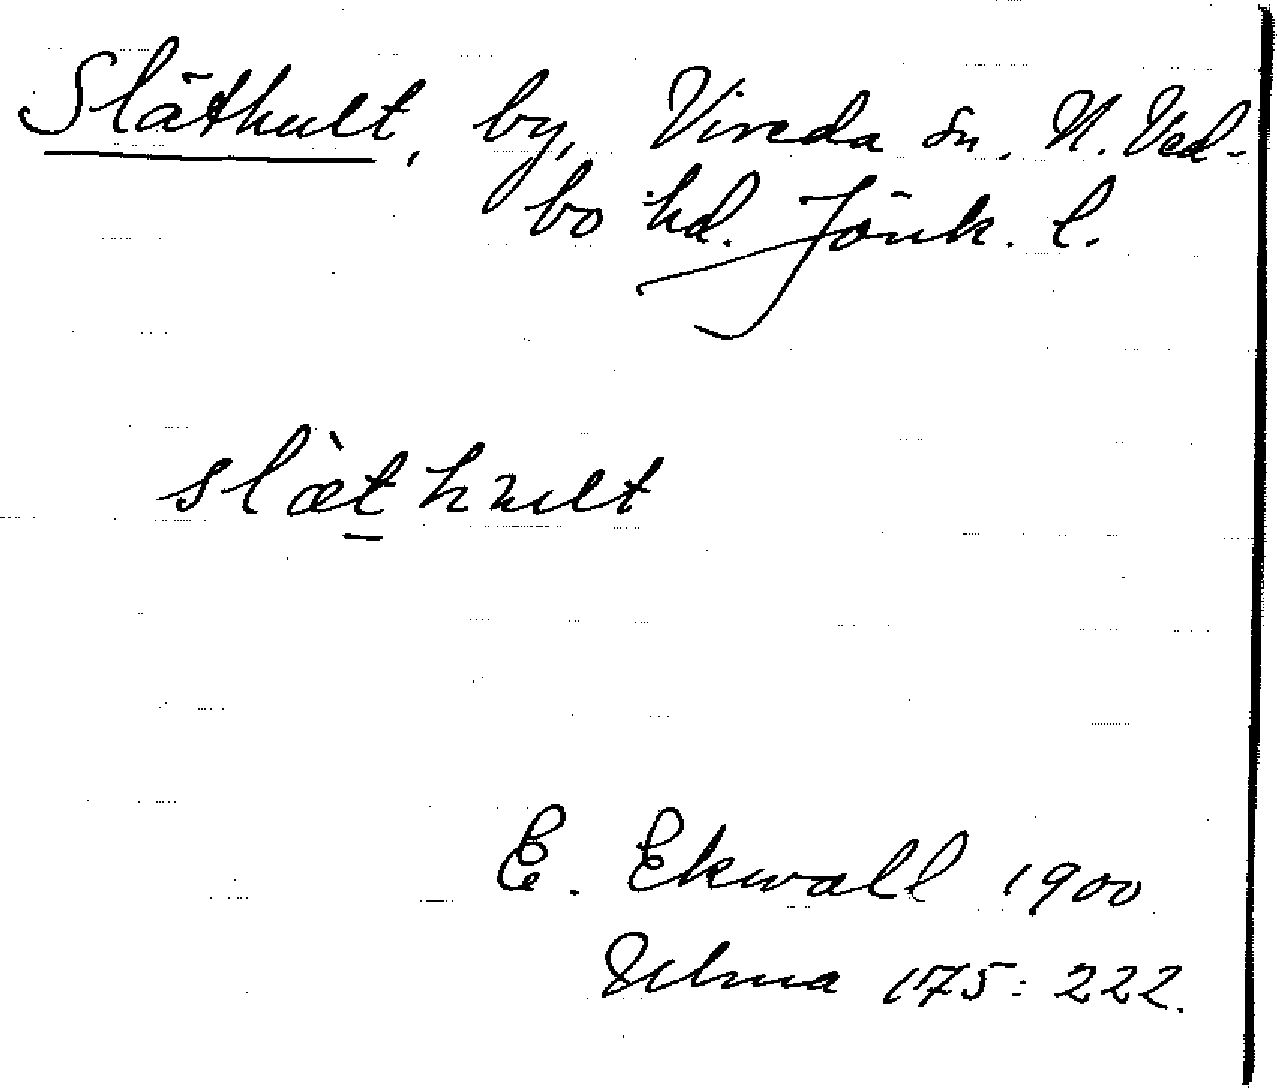 Släthult, by, Vireda sn. N. Ved-
bo hd. Jönk. l.
slæ̀t hult
E. Ekwall 1900
Ulma 175: 222.